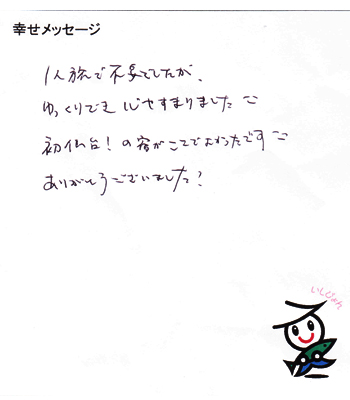 幸せメッセージ
1人旅で不安でしたが、
ゆっくりでき 心やすまりました
初仙台！の宿がここでよかったです
ありがとうございました！
いしじょん